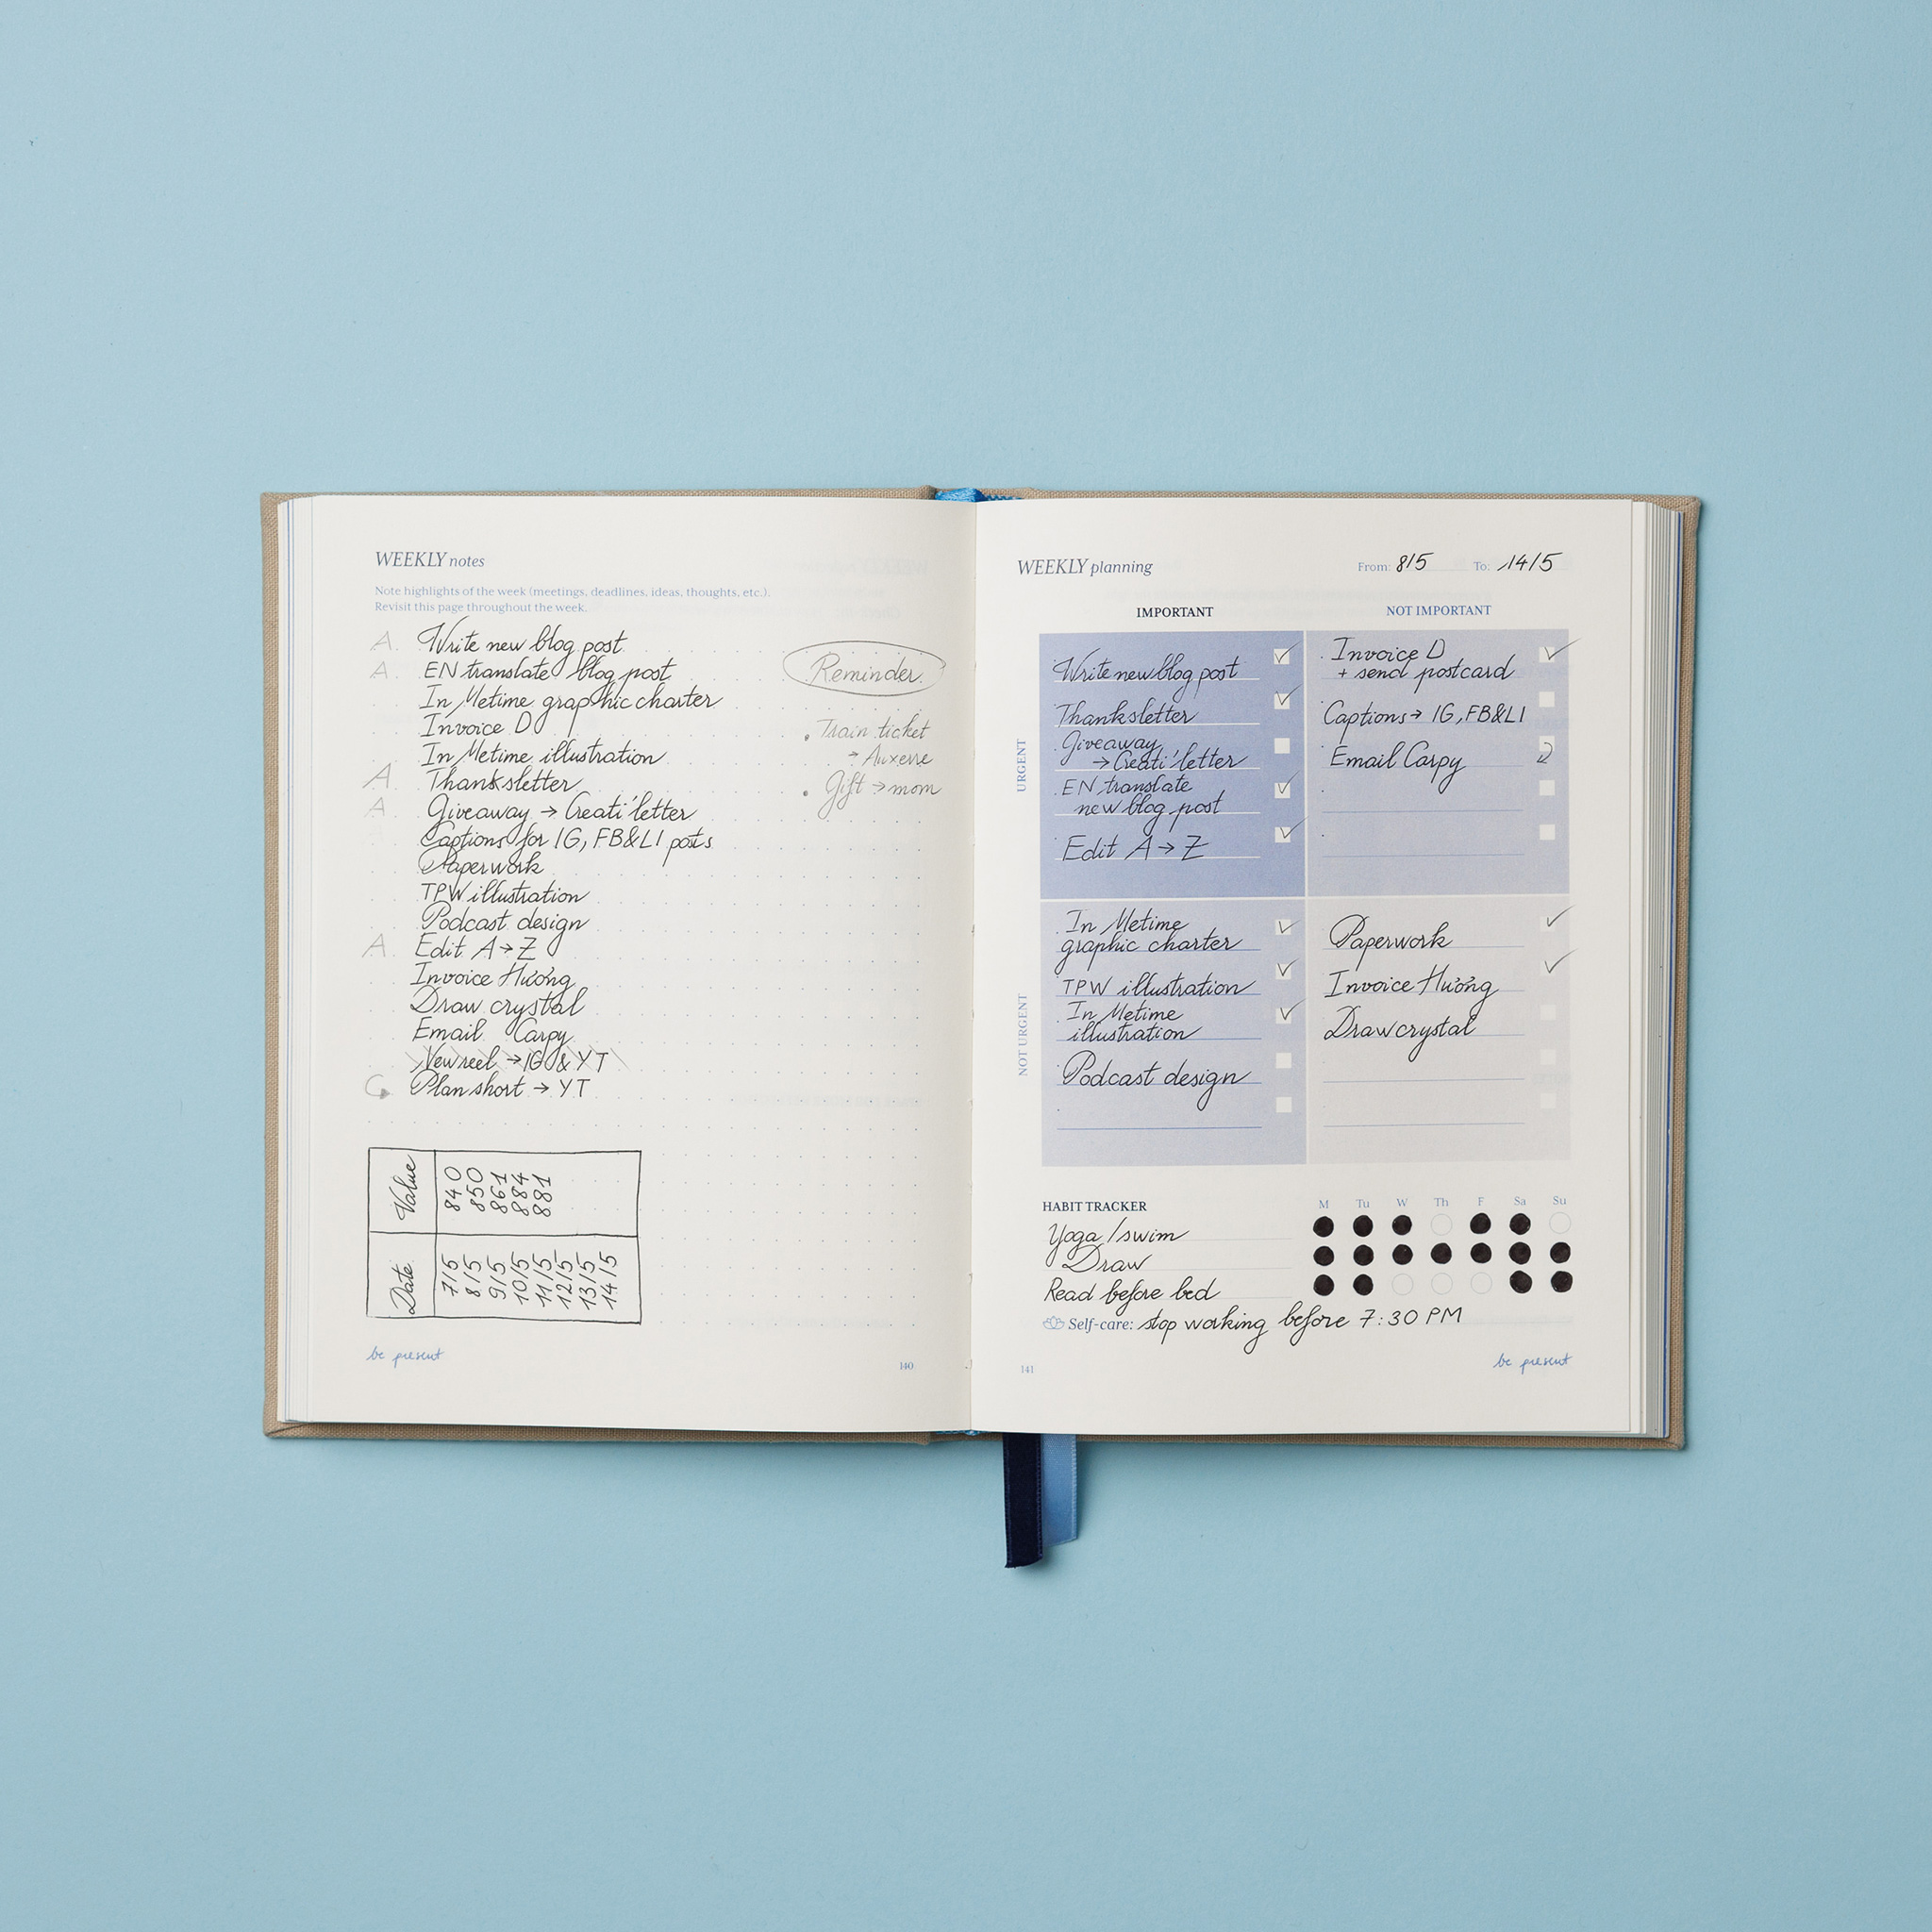 WEEKLY notes
Note highlights of the week (meetings, deadlines, ideas, thoughts, etc.).
Revisit this page throughout the week.
A. Write new blog post
A. EN translate blog post
In Metime graphic charter
Invoice D
In Metime illustration
A Thanksletter
A. Giveaway → Creati'letter
Captions for IG, FB&LI posts
Paperwork
TPW illustration
Podcast design
A. Edit A→Z
Invoice Hương
Draw crystal
Email Carpy
New reel → IG & YT
Plan short → YT
Reminder
. Train ticket
→ Auxerre
. Gift → mom
Date Value
7/5 840
8/5 850
9/5 861
10/5 884
11/5 881
12/5
13/5
14/5
be present
140
WEEKLY planning
From: 8/5 To: 14/5
IMPORTANT
NOT IMPORTANT
URGENT
Write new blog post
Thanksletter
Giveaway
→ Creati'letter
EN translate
new blog post
Edit A→Z
Invoice D
+ send postcard
Captions→ IG, FB&LI
Email Carpy
NOT URGENT
In Metime
graphic charter
TPW illustration
In Metime
illustration
Podcast design
Paperwork
Invoice Hương
Draw crystal
HABIT TRACKER
M Tu W Th F Sa Su
Yoga / swim
Draw
Read before bed
Self-care: stop working before 7:30 PM
141
be present